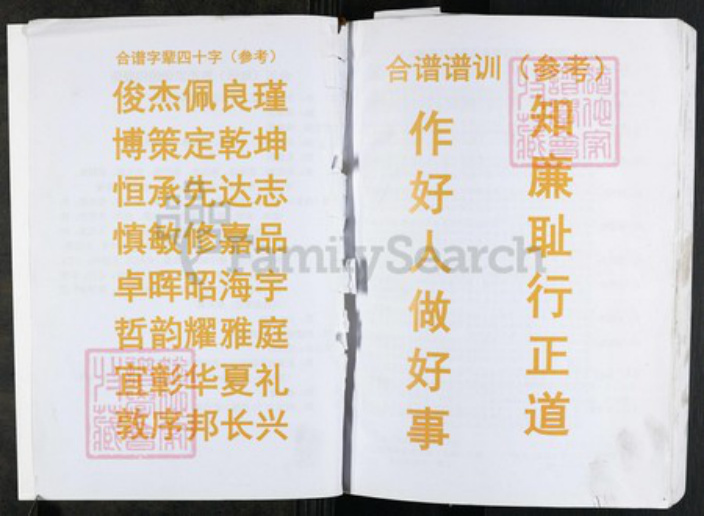 合谱字辈四十字（参考）
俊杰佩良瑾
博策定乾坤
恒承先达志
慎敏修嘉品
卓晖昭海宇
哲韵耀雅庭
宜彰华夏礼
敦序邦长兴
合谱谱训（参考）
知廉耻行正道
作好人做好事
FamilySearch